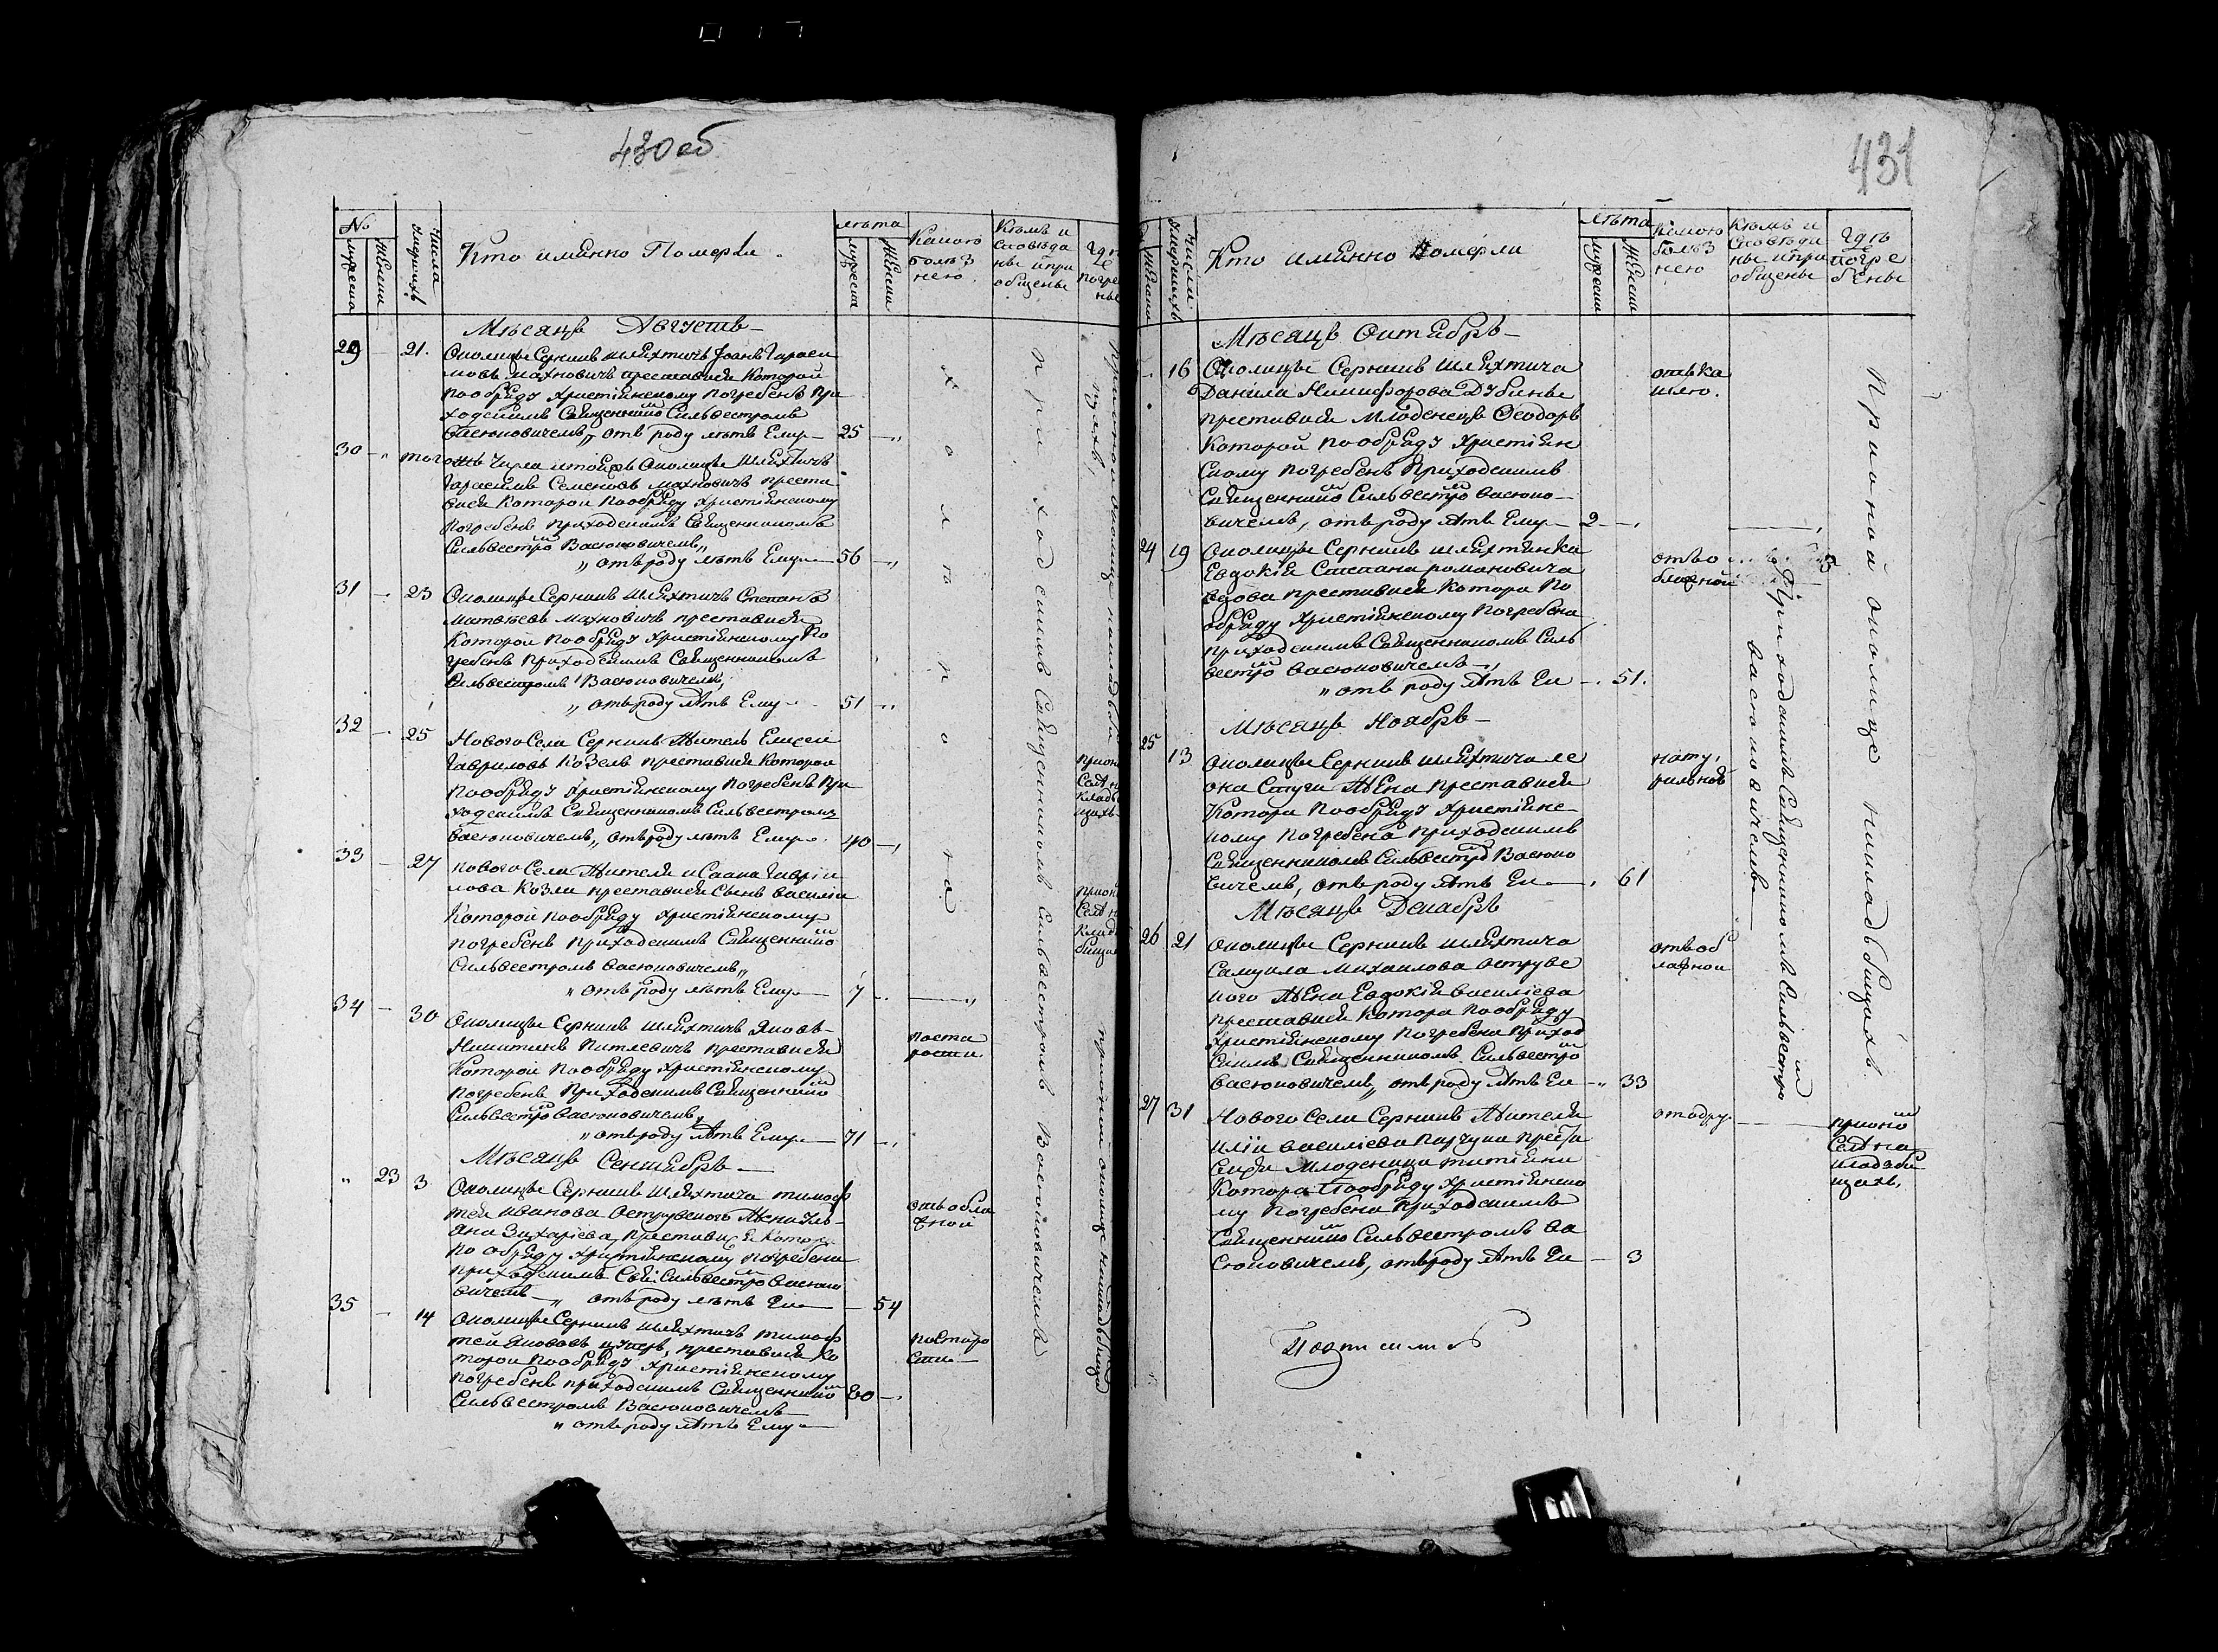 430 об
№
мужеска
женска
числа умершихъ
Кто именно Померли.
лѣта
мужеска
женска
Какою
болѣз
нею.
Кѣмъ и
сповѣда
ны и при
общены
гдѣ
погре
Мѣсяцъ Августъ
29 – 21. Околицы Серникъ шляхтичъ Іоанъ Гараси
мовъ Махновичъ преставися Которой
по обряду христіянскому погребенъ при
ходскимъ Священникомъ Сильвестромъ
Васюковичемъ, отъ роду лѣтъ Ему – 25 –
30 – „ того жъ числа
Гарасимъ Семеновъ Махновичъ преста
вися Которой по обряду христіянскому
погребенъ приходскимъ Священникомъ
Сильвестро Васюковичемъ,,
„ отъ роду лѣтъ Ему – 56 –
31 – 23 Околицы Серникъ шляхтичъ Степанъ
Матвѣевъ Махновичъ преставися
Которой по обряду христіянскому по
гребенъ приходскимъ Священникомъ
Сильвестромъ Васюковичемъ,
„ отъ роду лѣтъ Ему – 51 –
32 – 25 Нового Села Серникъ житель Елисей
Гавриловъ Козелъ преставися Которой
по обряду христіянскому погребенъ при
ходскимъ Священникомъ Сильвестромъ
Васюковичемъ,, отъ роду лѣтъ Ему – 40 –
33 – 27 нового Села жителя Исаака Гаврі
лова Козла преставися Сынъ Василій
Которой по обряду христіянскому
погребенъ приходскимъ Священнико
Сильвестромъ Васюковичемъ,,
„ отъ роду лѣтъ Ему – 7 –
34 – 30 Околицы Серникъ шляхтичъ Яковъ
Никитинъ преставися
Которой по обряду христіянскому
погребенъ приходскимъ Священнико
Сильвестро Васюковичемъ,
„ отъ роду лѣтъ Ему – 71 –
по ста
рости
Мѣсяцъ Сентябрь –
„ 23 3 Околицы Серникъ шляхтича Тимоф
тея Иванова Островского жена
Захаріева преставися Котора
по обряду христіянскому погребена
приходскимъ Свя: Сильвестро Васюко
вичемъ – „ отъ роду лѣтъ Еи – – 54
35 – 14 Околицы Серникъ шляхтичъ Тимоф
тей Якововъ преставися Ко
торой по обряду христіянскому
погребенъ приходскимъ Священнико 80 –
Сильвестромъ Васюковичемъ
„ отъ роду лѣтъ Ему –
по старо
сти –
холопокола
приходскимъ Священникомъ Сильвестромъ Васюковичемъ
431
женски
числа умершихъ
Кто именно Померли
лѣта
мужеска
женска
Какою
болѣз
нею
Кѣмъ и
Сповѣда
ны и при
общены
гдѣ
погре
бены
Мѣсяцъ Октябрь –
– 16 Околицы Серникъ шляхтича
Данила Никифорова Дубины
преставися Младенецъ Ѳеодоръ
Которой по обряду христіян
скому погребенъ приходскимъ
Священнико Сильвестро Васюко –
вичемъ, отъ роду лѣтъ Ему – 2 –
отъ ка
шлю.
24 19 Околицы Серникъ шляхтянка
Евдокія Степана романовича
вдова преставися Котора по
обряду христіянскому погребена
приходскимъ Священникомъ Силь
вестро Васюковичемъ –,
„ отъ роду лѣтъ Еи – . 51.
Мѣсяцъ Ноябрь –
25 13 Околицы Серникъ шляхтича ле
она жена преставися
Котора по обряду христіянс
кому погребена приходскимъ
Священникомъ Сильвестро Васюко
вичемъ, отъ роду лѣтъ Еи – 61
нату,
ральной
Мѣсяцъ Декабрь
26 21 Околицы Серникъ шляхтича
Самуила Михаилова Островс
кого жена Евдокія Василіева
преставися Котора по обряду
христіянскому погребена приход
скимъ Священникомъ Сильвестро
Васюковичемъ,, отъ роду лѣтъ Еи – 33
27 31 Нового Села Серникъ жителя
Иліи Василіева преста
вися Младеница
Котора по обряду христіянско
му погребена приходскимъ
Священнико Сильвестромъ Ва
сюковичемъ, отъ роду лѣтъ Еи – 3
приходскимъ Священникомъ Сильвестро
Васюковичемъ
при оной околице на кладбищахъ.
при оно
селѣ на
кладби
щахъ,